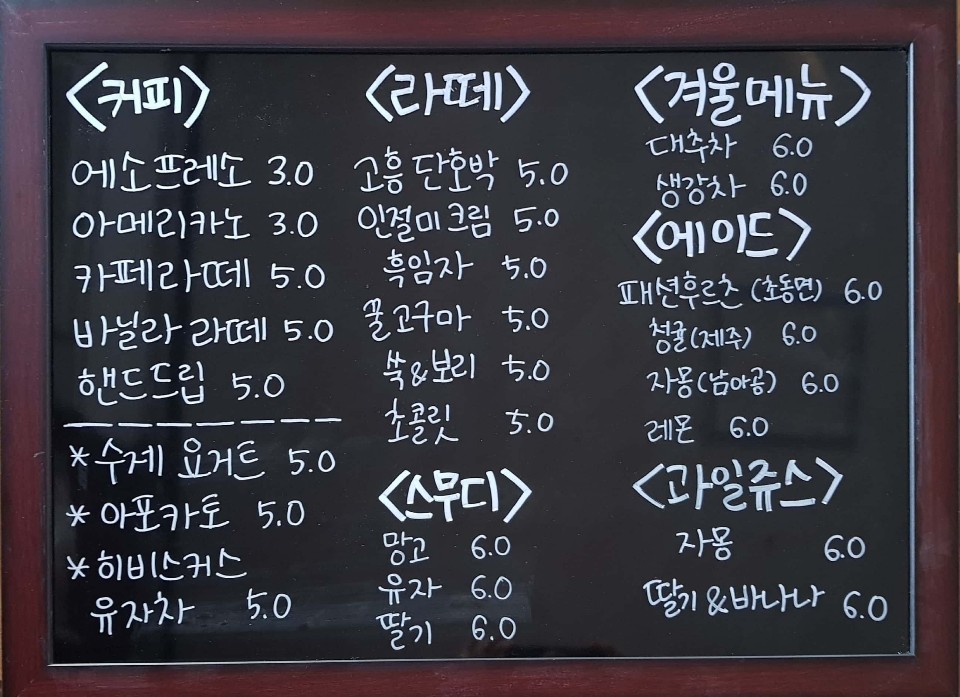 <커피>
에소프레소 3.0
아메리카노 3.0
카페라떼 5.0
바닐라 라떼 5.0
핸드드립 5.0
*수제 요거트 5.0
*아포카토 5.0
*히비스커스
유자차 5.0
<라떼>
고흥단호박 5.0
인절미크림 5.0
흑임자 5.0
꿀고구마 5.0
쑥&보리 5.0
초콜릿 5.0
<스무디>
망고 6.0
유자 6.0
딸기 6.0
<겨울메뉴>
대추차 6.0
생강차 6.0
<에이드>
패션후르츠(초동면) 6.0
청귤(제주) 6.0
자몽(남아공) 6.0
레몬 6.0
<과일쥬스>
자몽 6.0
딸기&바나나 6.0